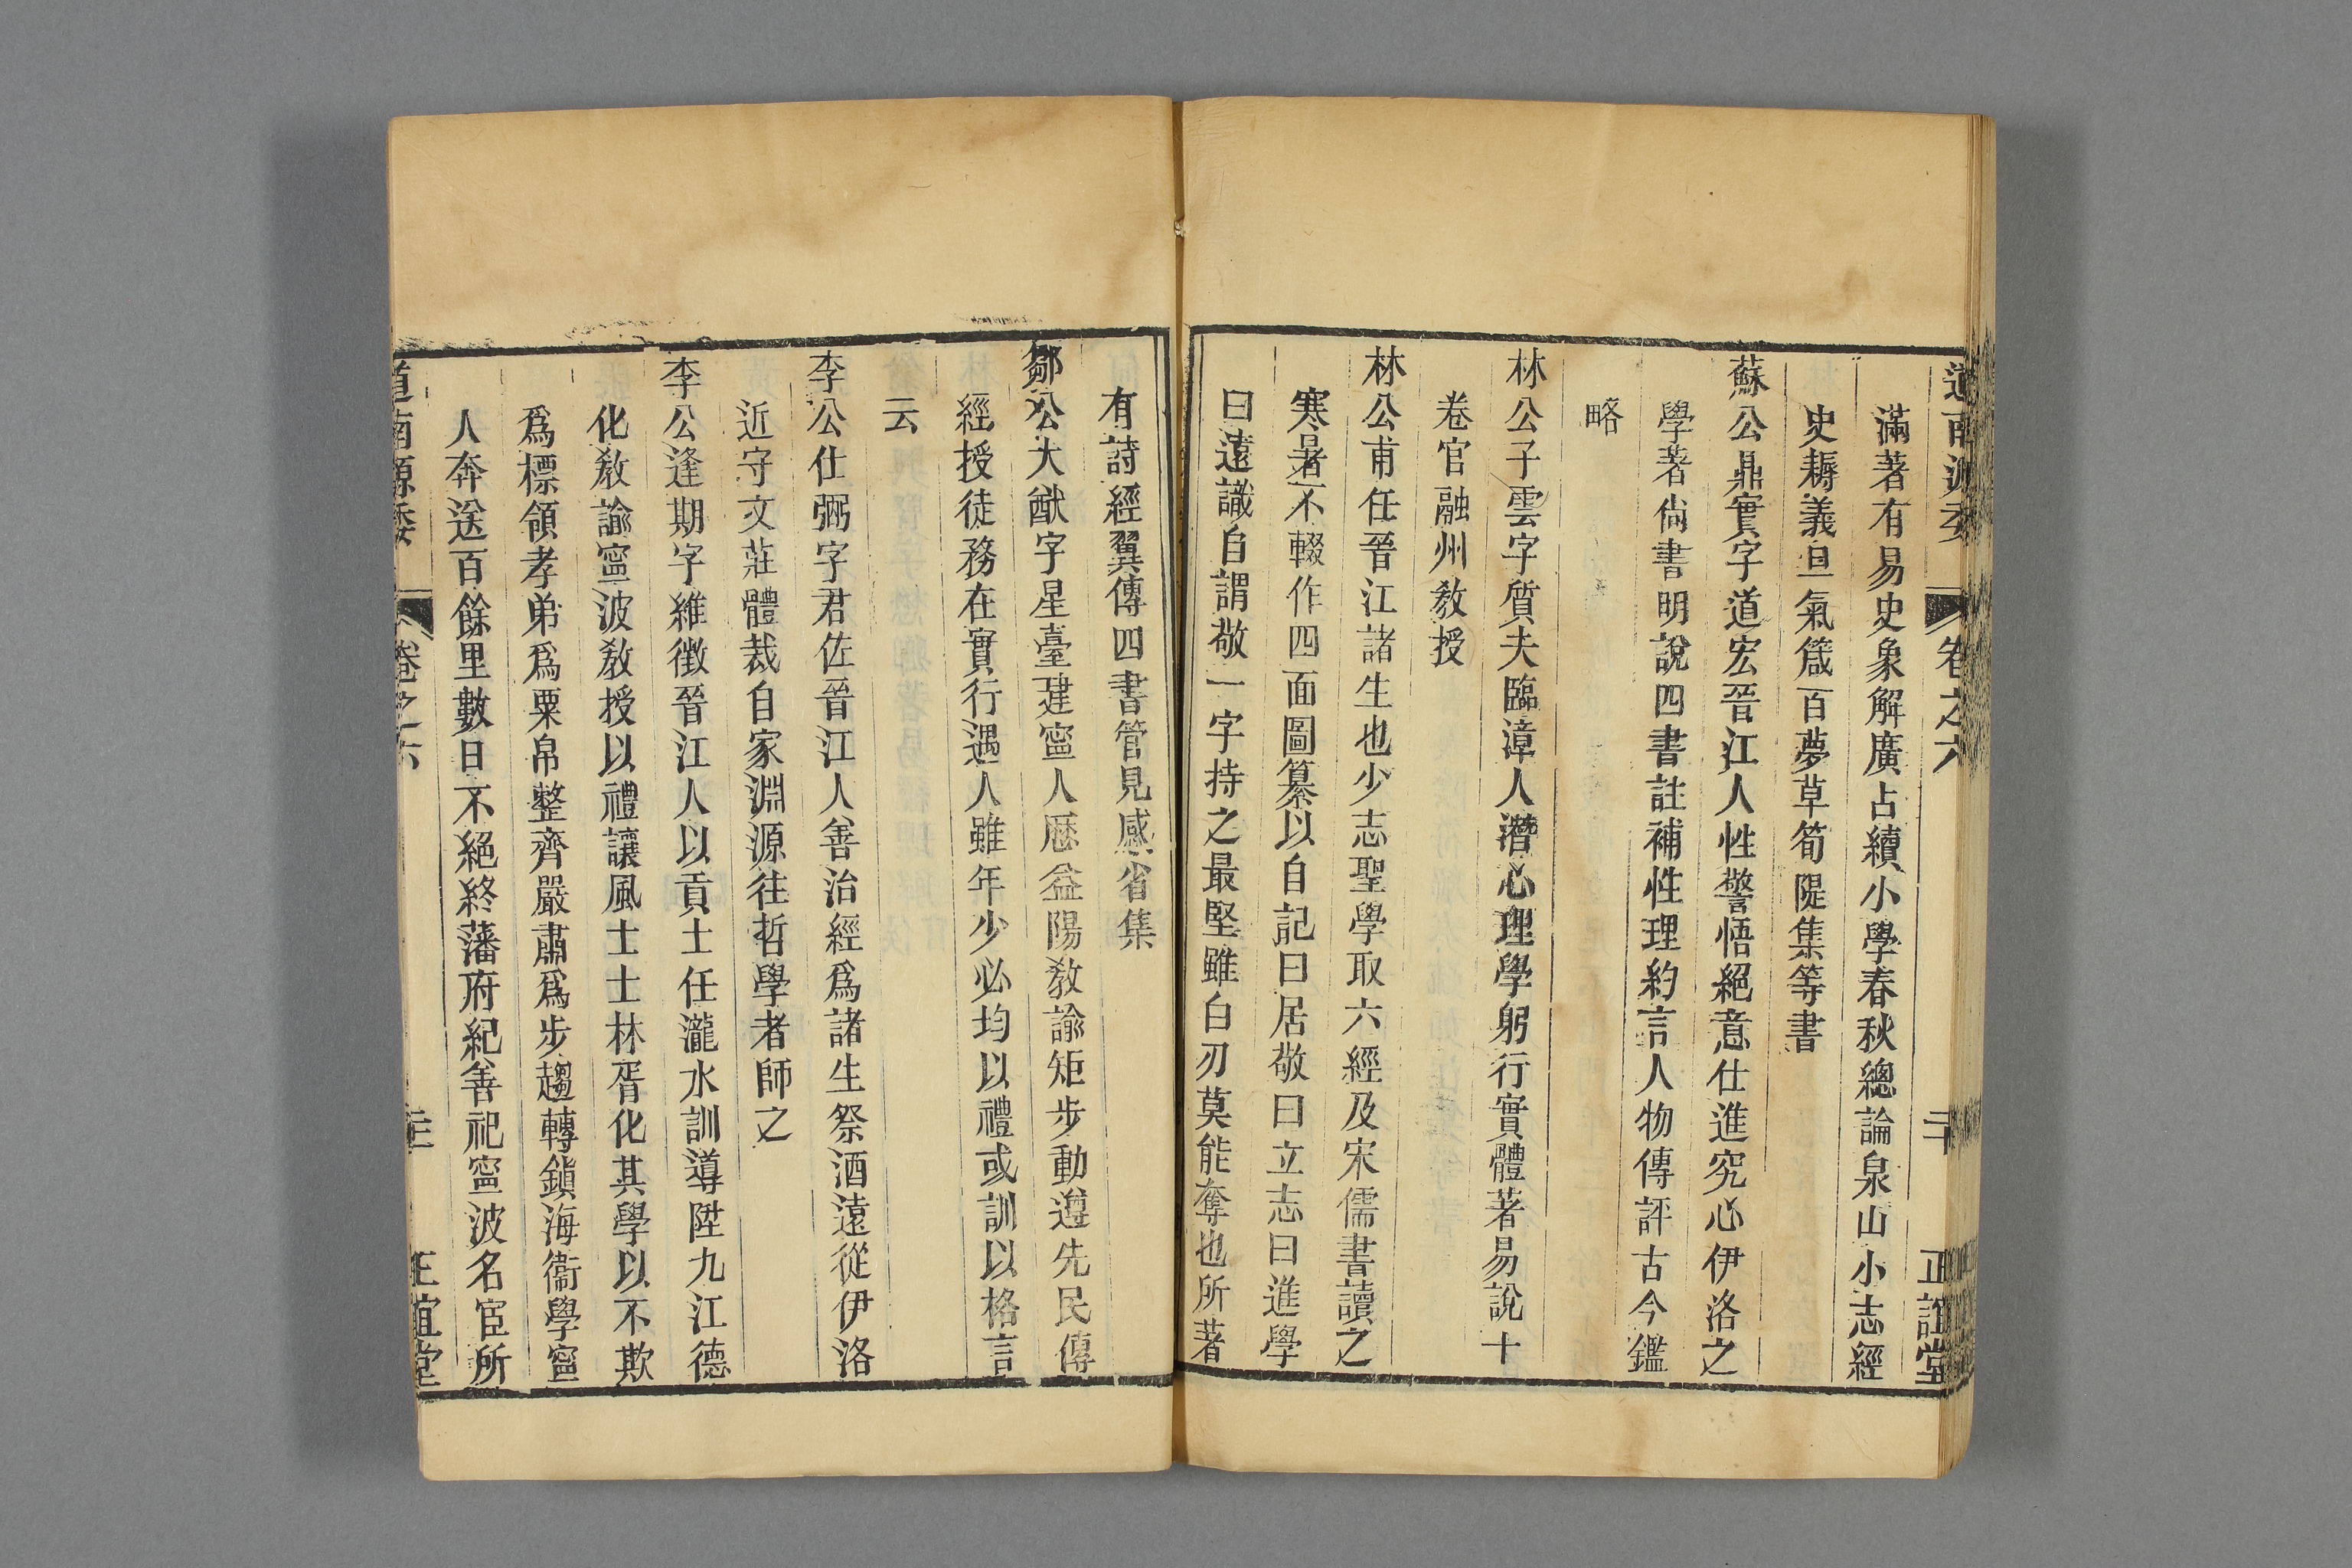 道南源委
卷之六
二十
正誼堂
滿著有易史象解廣占續小學春秋總論泉山小志經
史耨義亘氣箴百夢草筍隄集等書
蘇公鼎實字道宏晉江人性警悟絕意仕進究心伊洛之
學著尚書明說四書註補性理約言人物傳評古今鑑
略
林公子雲字質夫臨漳人潛心理學躬行實體著易說十
卷官融州敎授
林公甫任晉江諸生也少志聖學取六經及宋儒書讀之
寒暑不輟作四面圖纂以自記曰居敬曰立志曰進學
曰遠識自謂敬一字持之最堅雖白刃莫能奪也所著
有詩經翼傳四書管見感省集
鄒公大猷字星臺建寧人厯益陽敎諭矩步動遵先民傳
經授徒務在實行遇人雖年少必均以禮或訓以格言
云
李公仕弼字君佐晉江人善治經爲諸生祭酒遠從伊洛
近守文莊體裁自家淵源往哲學者師之
李公逢期字維徵晉江人以貢士任瀧水訓導陞九江德
化敎諭寧波敎授以禮讓風士士林胥化其學以不欺
爲標領孝弟爲粟帛整齊嚴肅爲步趨轉鎮海衞學寧
人奔送百餘里數日不絕終藩府紀善祀寧波名宦所
道南源委
卷之六
正誼堂